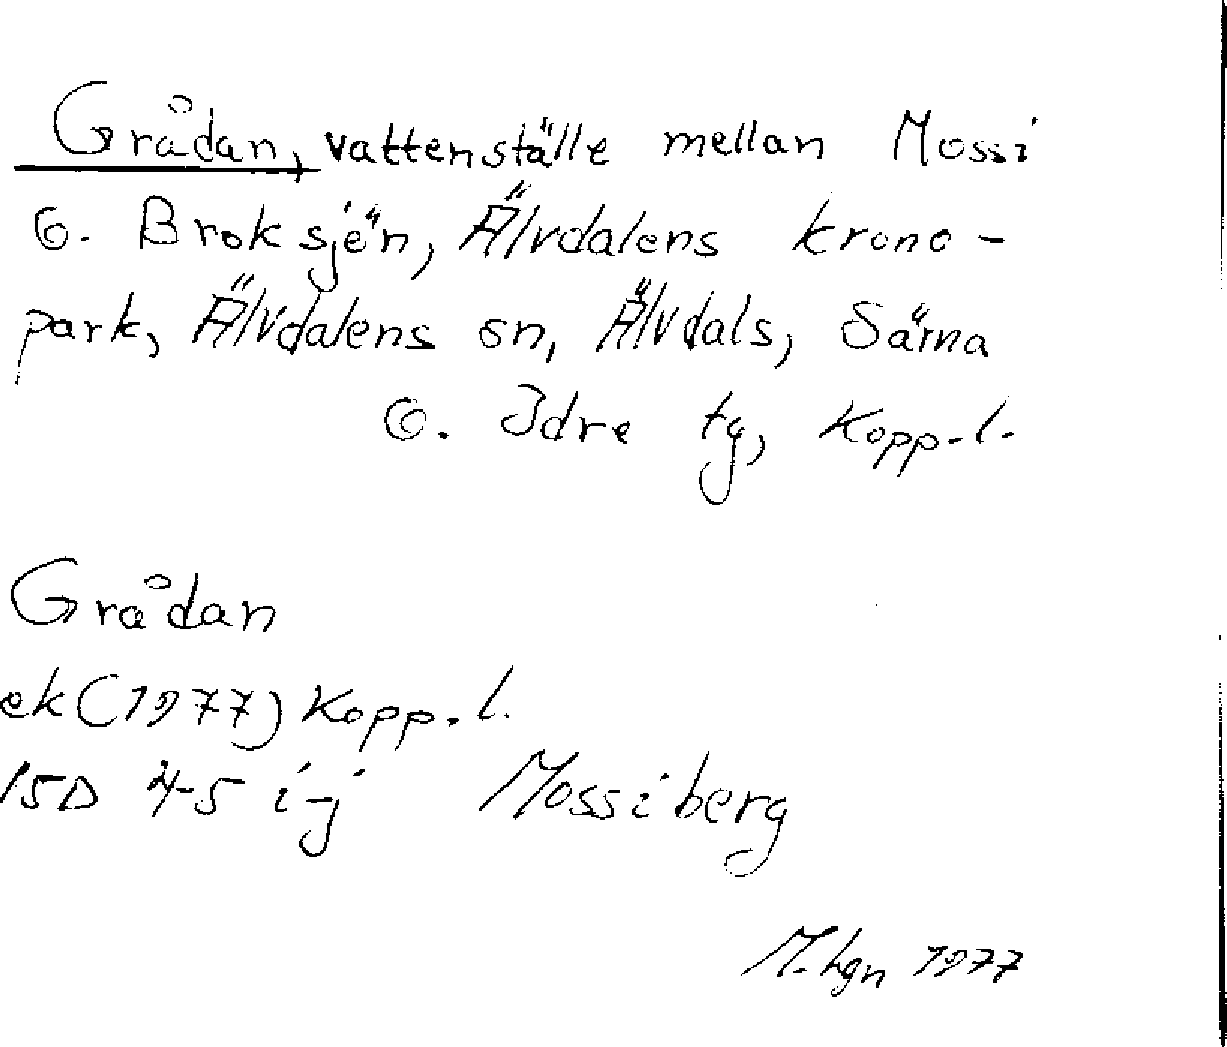 Grådan, vattenställe mellan Mossi
o. Broksjön, Älvdalens krono-
park, Älvdalens sn, Älvdals, Särna
o. Idre tg, Kopp.l.
Grådan
ek (1977) Kopp.l.
15D 4-5 i-j Mossiberg
M.hgn 1977